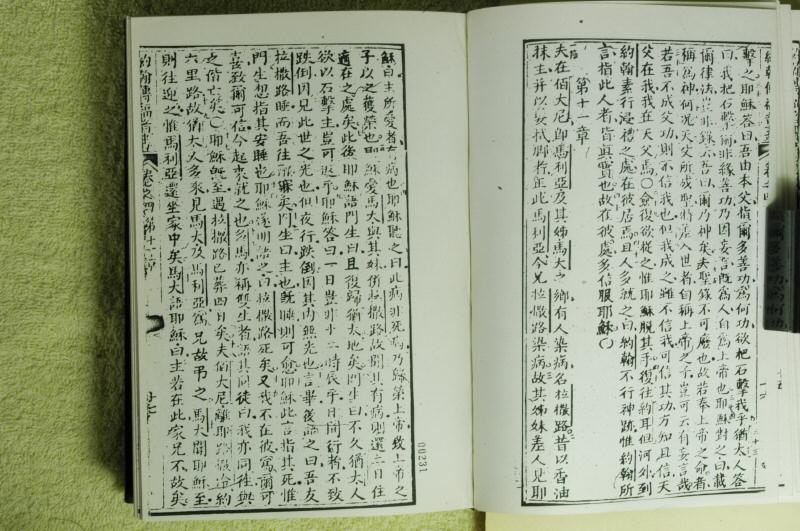 擊之耶穌答曰吾由本父指爾多善功爲何功欲把石擊我乎猶太人答
曰我把石擊爾非緣善功乃因妄言旣爲人自爲上帝也耶穌對之曰載
爾律法豈非錄云吾曰爾乃神矣夫聖錄不可廢也故若奉上帝之命者
稱爲神何况天父所成聖將差入世者自稱上帝之子豈可云有妄言哉
若吾不成父功則不信我也但我成之雖不信我可信其功方知且信天
父在我我在天父焉〇僉復欲從之惟耶穌脫其手復往約耳但河外到
約翰素行浸禮之處在彼居焉且人多就之曰約翰不行神跡惟約翰所
言指此人者皆眞實也故在彼處多信服耶穌〇
第十一章
夫在佰大尼卽馬利亞及其姊馬大之鄉有人染病名拉撒路昔以香油
抹主并以髮拭脚者乃此馬利亞今兄拉撒路染病故其姊妹差人見耶
穌曰主所愛者有病也耶穌聽之曰此病非死病乃歸榮上帝致上帝之
子以之獲榮也耶穌愛馬大與其妹併拉撒路故聞其有病則還二日住
適在之處矣此後耶穌語門生曰且復歸猶太地矣門生曰不久猶太人
欲以石擊主豈可返乎耶穌答曰一日豈非十二時辰乎日間行者不致
跌倒因見此世之光也但夜行跌倒因其内無光也言畢後語之曰吾友
拉撒路睡而吾往醒寐矣門生曰主也旣睡則可愈耶穌此言指其死惟
門生想指其安睡也耶穌遂明語之曰拉撒路死矣又我不在彼寔爾可
喜致爾可信今起來就之也多馬亦稱雙生者語其同徒曰我亦同往與
之偕亡矣〇耶穌旣至遇拉撒路已葬四日矣夫佰大尼離耶路撒冷約
六里路故猶太人多來見馬大及馬利亞爲兄故弔之馬大聞耶穌至
則往迎之惟馬利亞還坐家中矣馬大語耶穌曰主若在此家兄不故矣
00231